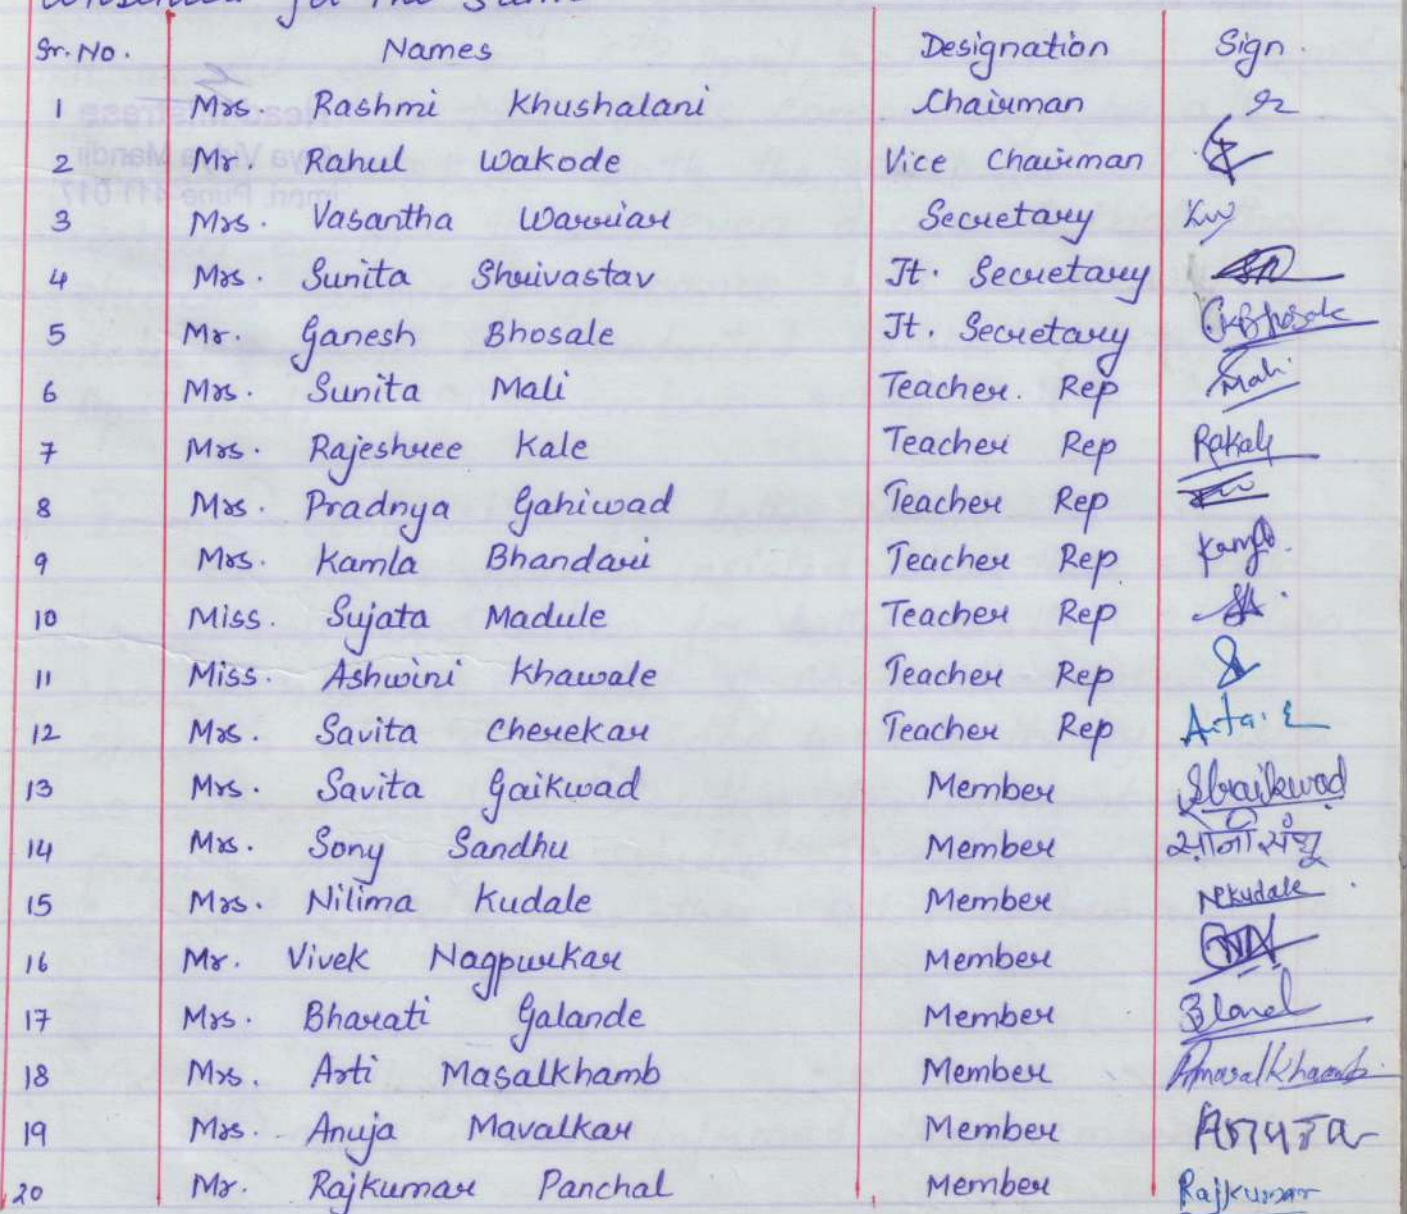 for the same
Sr. No. Names Designation Sign.
1 Mrs. Rashmi Khushalani Chairman
2 Mr. Rahul Wakode Vice Chairman
3 Mrs. Vasantha Warriar Secretary
4 Mrs. Sunita Shrivastav Jt. Secretary
5 Mr. Ganesh Bhosale Jt. Secretary GKBhosale
6 Mrs. Sunita Mali Teacher. Rep Mali
7 Mrs. Rajeshree Kale Teacher Rep RaKale
8 Mrs. Pradnya Gahiwad Teacher Rep
9 Mrs. Kamla Bhandari Teacher Rep
10 Miss. Sujata Madule Teacher Rep
11 Miss. Ashwini Khawale Teacher Rep
12 Mrs. Savita Cherekar Teacher Rep
13 Mrs. Savita Gaikwad Member SGaikwad
14 Mrs. Sony Sandhu Member सोनी संधू
15 Mrs. Nilima Kudale Member NKudale
16 Mr. Vivek Nagpurkar Member
17 Mrs. Bharati Galande Member
18 Mrs. Arti Masalkhamb Member Amasalkhamb
19 Mrs. Anuja Mavalkar Member
20 Mr. Rajkumar Panchal Member Rajkumar